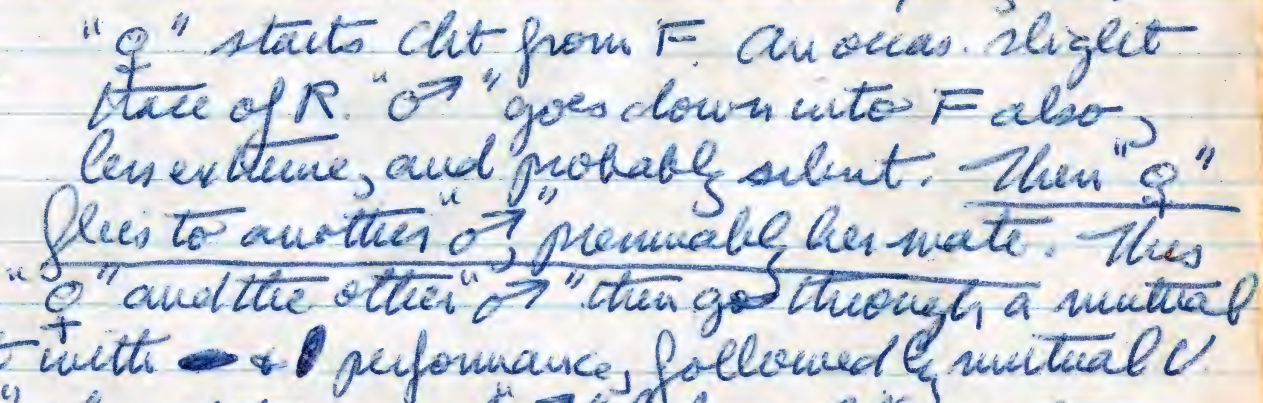 "♀" starts Cht from F. An occas. slight
trace of R. "♂" goes down into F also,
less extreme, and probably silent. Then "♀"
flies to another "♂", presumably her mate. This
"♀" and the other "♂" then go through a mutual
with & performance, followed by mutual V